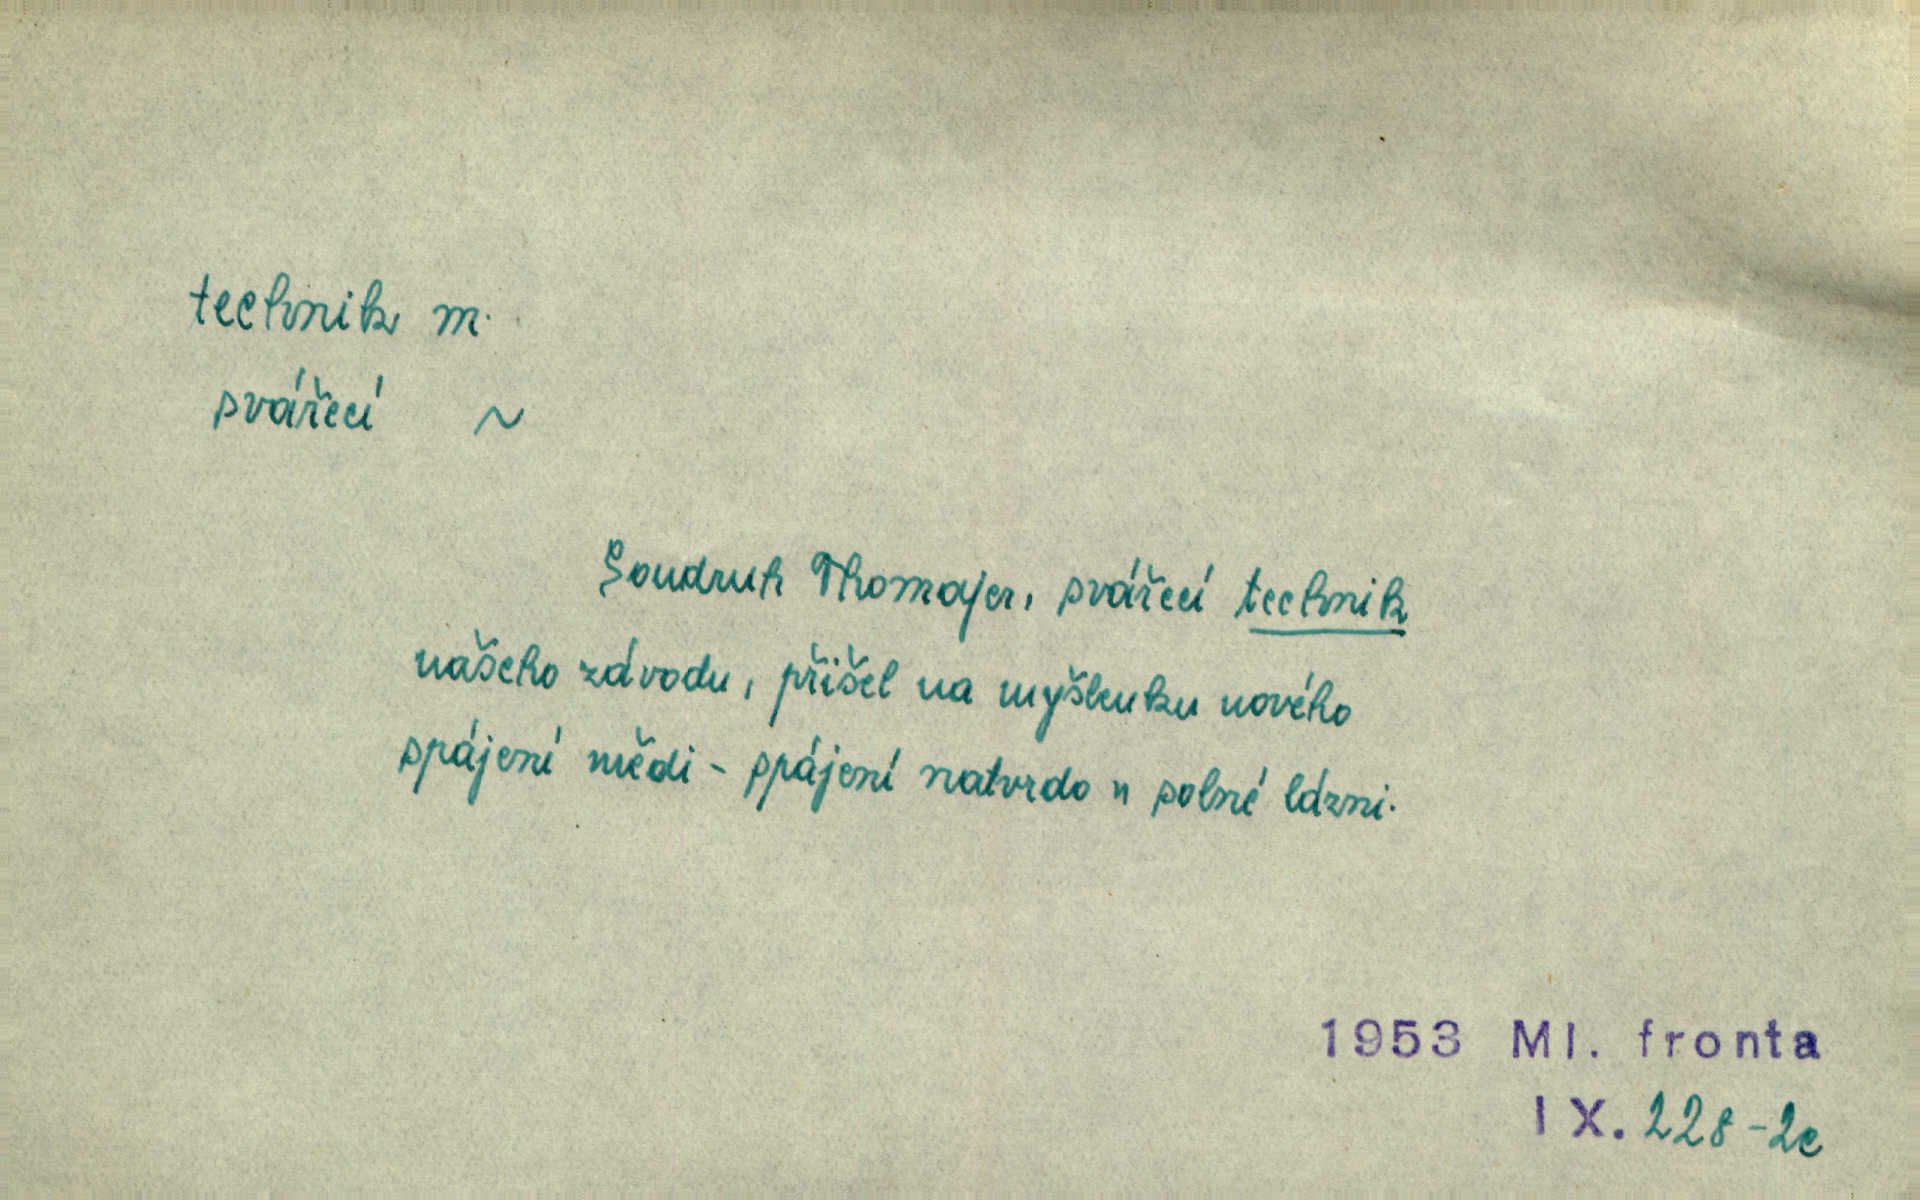 technik m.
svářecí ~
Soudruh Thomajer, svářecí technik
našeho závodu, přišel na myšlenku nového
spájení mědi - spájení natvrdo v solné lázni.
1953 Ml. fronta
IX. 228-2c